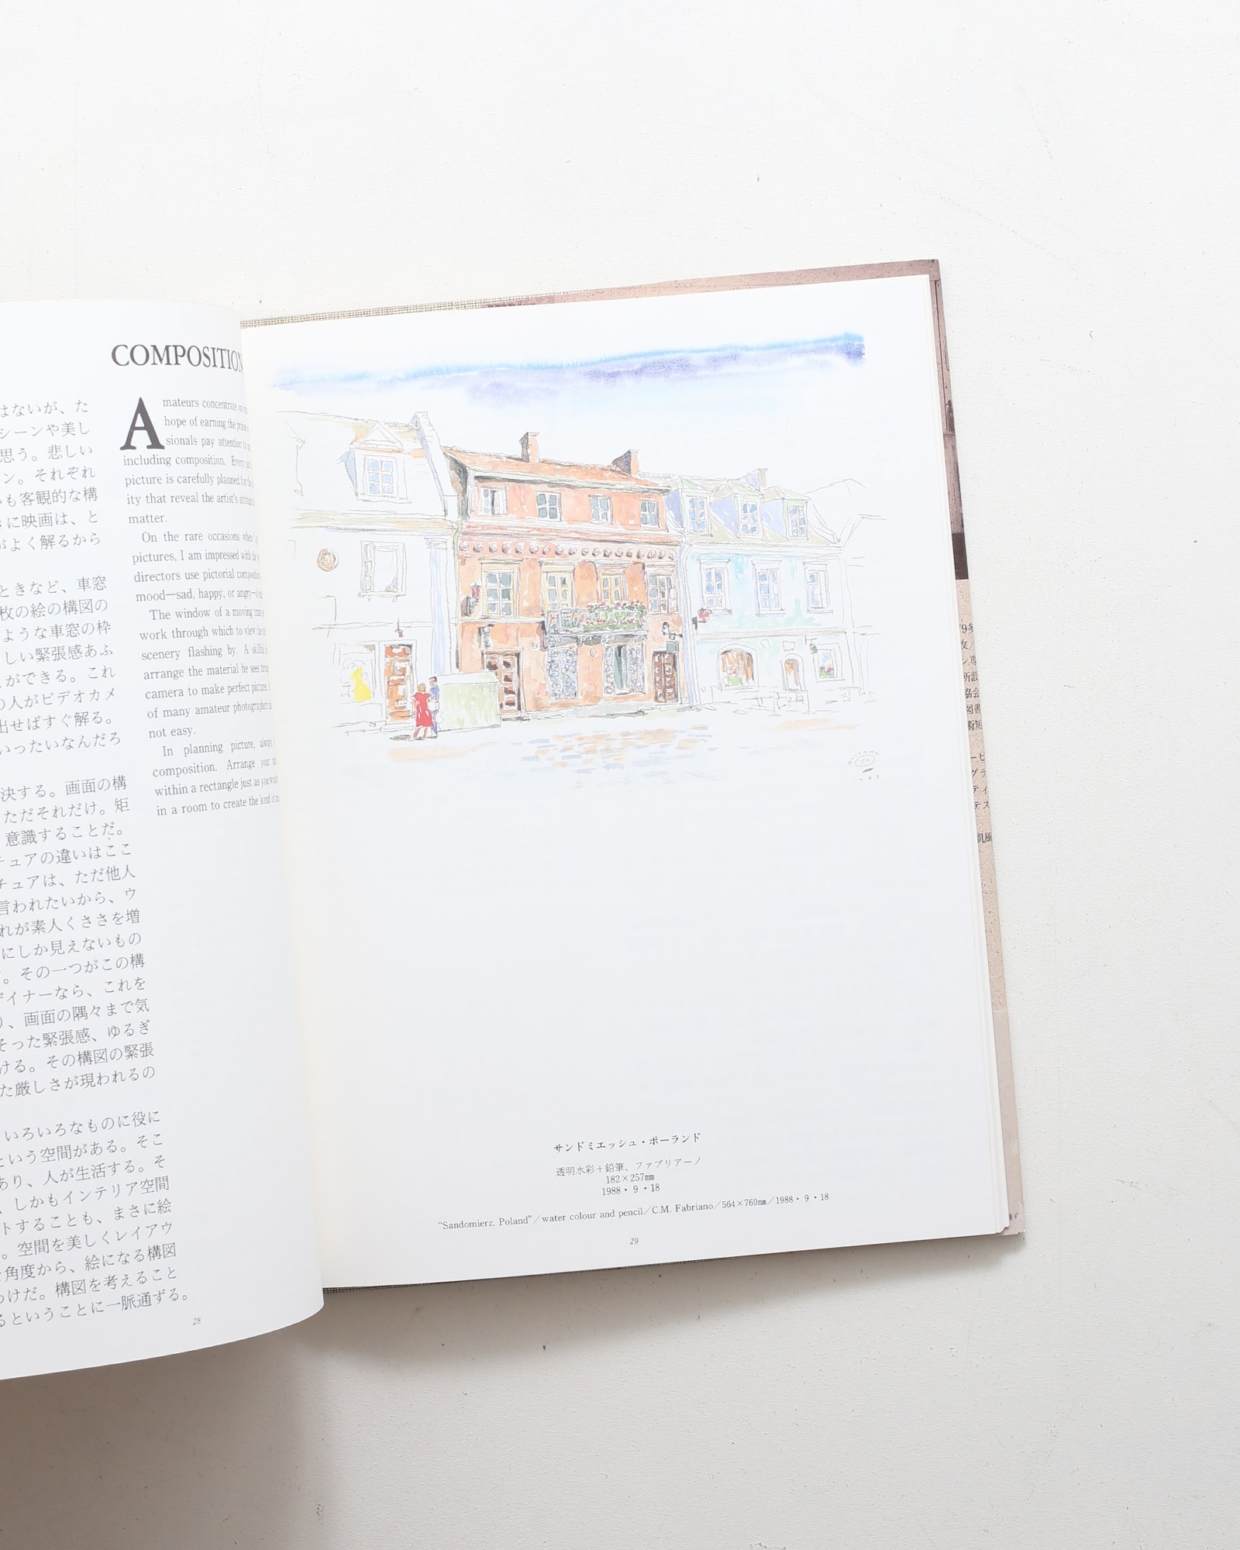 はないが、た
シーンや美し
思う。悲しい
ン。それぞれ
も客観的な構
に映画は、と
がよく解るから
ときなど、車窓
枚の絵の構図の
ような車窓の枠
しい緊張感あふ
ができる。これ
の人がビデオカメ
出せばすぐ解る。
いったいなんだろ
決する。画面の構
ただそれだけ。矩
意識することだ。
チュアの違いはここ
チュアは、ただ他人
言われたいから、ウ
れが素人くささを増
にしか見えないもの
。その一つがこの構
ザイナーなら、これを
、画面の隅々まで気
そった緊張感、ゆるぎ
ける。その構図の緊張
た厳しさが現われるの
いろいろなものに役に
という空間がある。そこ
あり、人が生活する。そ
、しかもインテリア空間
トすることも、まさに絵
。空間を美しくレイアウ
角度から、絵になる構図
わけだ。構図を考えること
るということに一脈通ずる。
28
COMPOSITION
Amateurs concentrate
hope of earning the
sionals pay attention
including composition. Every
picture is carefully planned for
ity that reveal the artist's
matter.
On the rare occasions
pictures, I am impressed with
directors use pictorial
mood—sad, happy, or angry
The window of a moving
work through which to view
scenery flashing by. A
arrange the material he sees
camera to make perfect picture.
of many amateur
not easy.
In planning picture,
composition. Arrange
within a rectangle just as
in a room to create the kind of
サンドミエッシュ・ポーランド
透明水彩＋鉛筆、ファブリアーノ
182×257㎜
1988・9・18
"Sandomierz. Poland"／water colour and pencil／C.M. Fabriano／564×760㎜／1988・9・18
29